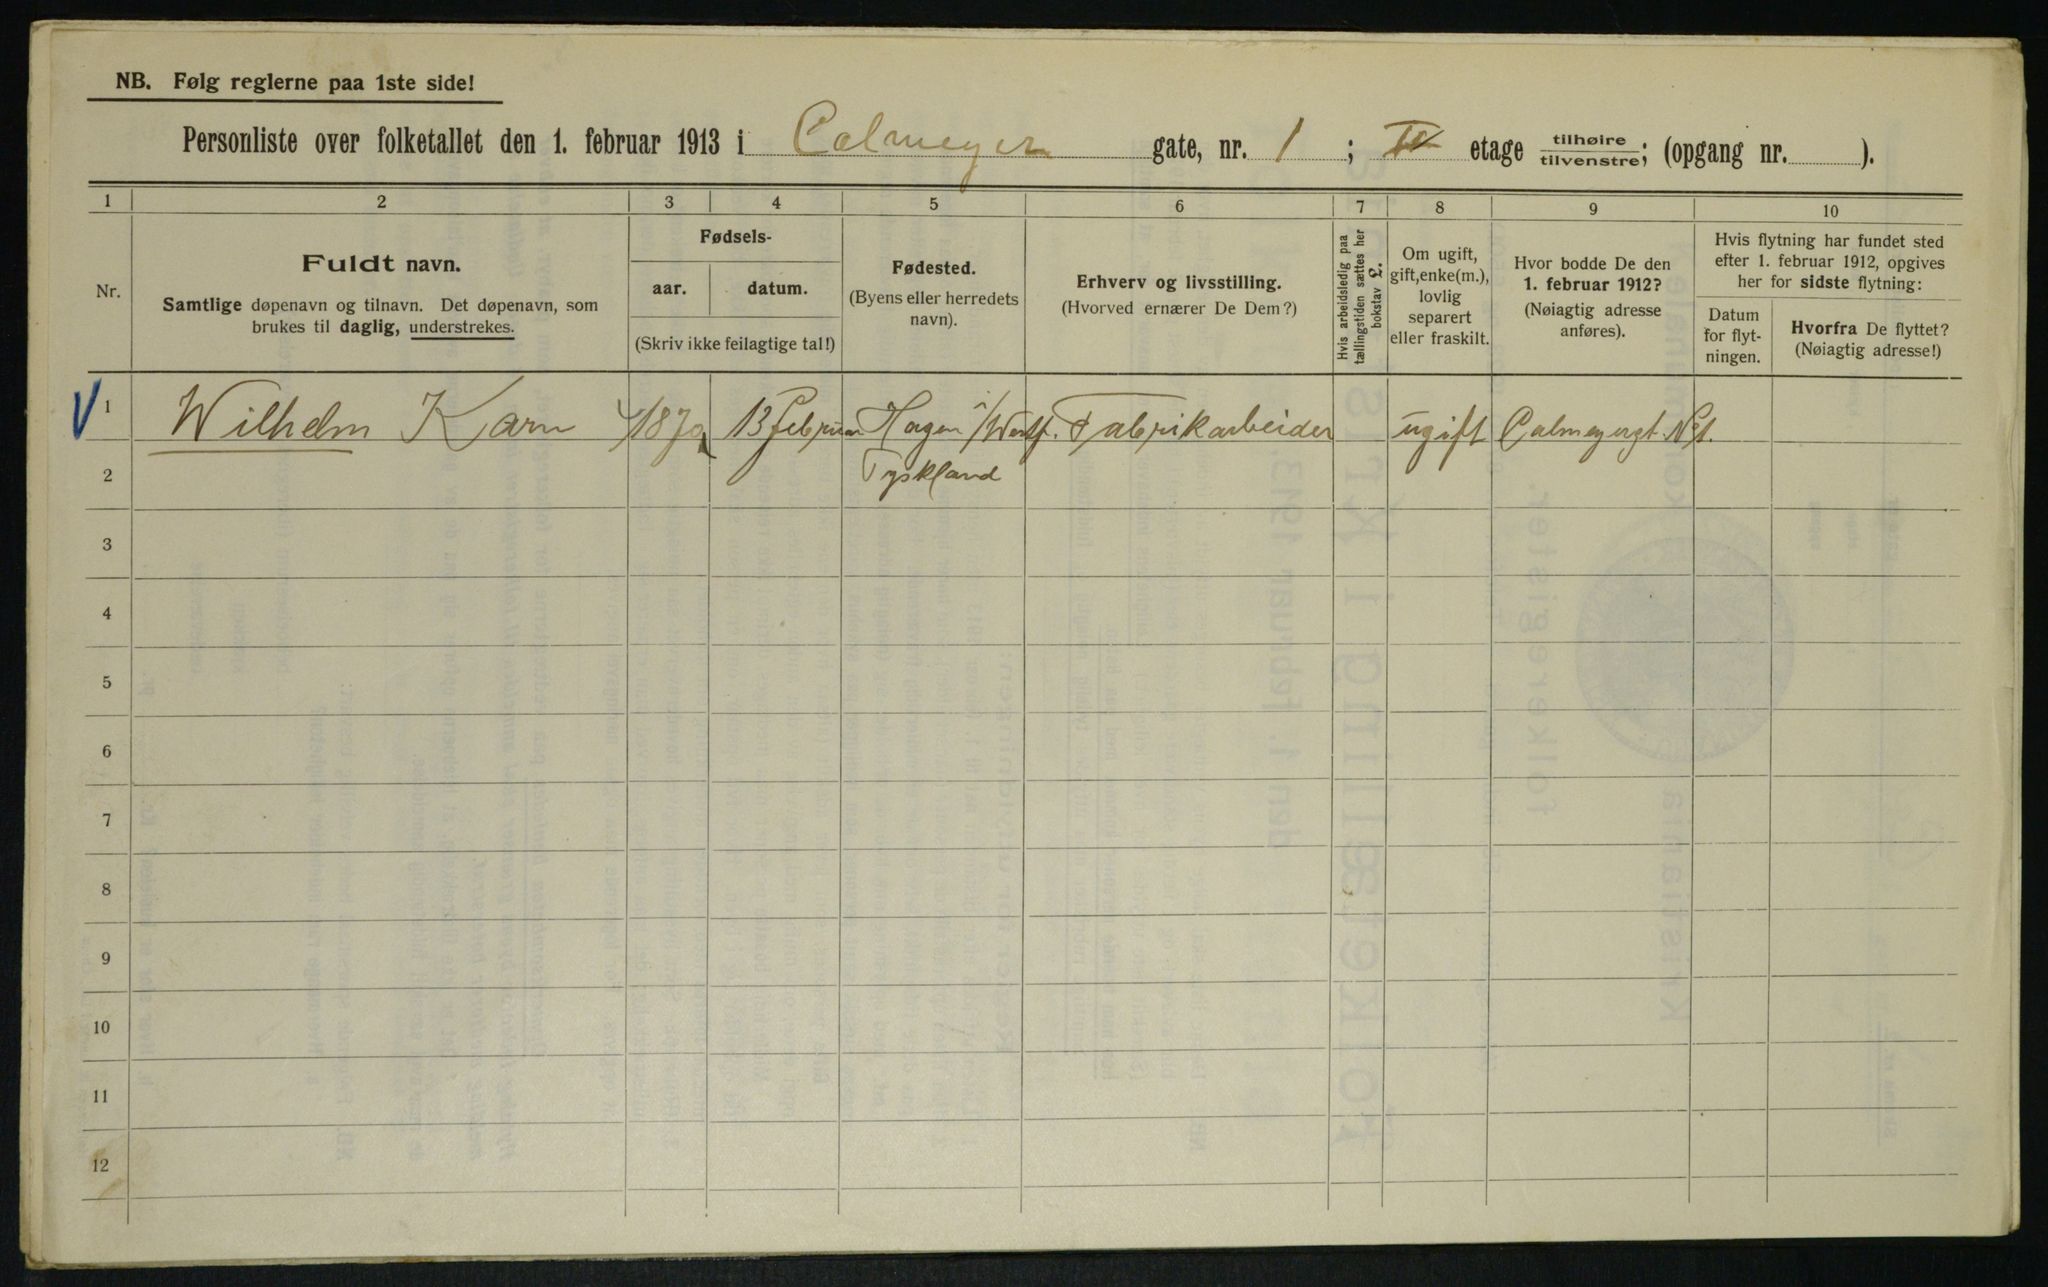 NB. Følg reglerne paa 1ste side!
Personliste over folketallet den 1. februar 1913 i Calmeyer gate, nr. 1; IV etage tilhøire/tilvenstre; (opgang nr. ).
1 2 3 4 5 6 7 8 9 10
Nr.
Fuldt navn.
Samtlige døpenavn og tilnavn. Det døpenavn, som
brukes til daglig, understrekes.
Fødsels-
aar. datum.
(Skriv ikke feilagtige tal!)
Fødested.
(Byens eller herredets
navn).
Erhverv og livsstilling.
(Hvorved ernærer De Dem?)
Hvis arbeidsledig paa
tællingstiden sættes her
bokstav L.
Om ugift,
gift, enke(m.),
lovlig
separert
eller fraskilt.
Hvor bodde De den
1. februar 1912?
(Nøiagtig adresse
anføres).
Hvis flytning har fundet sted
efter 1. februar 1912, opgives
her for sidste flytning:
Datum
for flyt-
ningen.
Hvorfra De flyttet?
(Nøiagtig adresse!)
1 Wilhelm Karn 1870 13 Februar Hagen i/Westf. Fabrikarbeider ugift Calmeyergt. No 1.
2 Tyskland
3
4
5
6
7
8
9
10
11
12